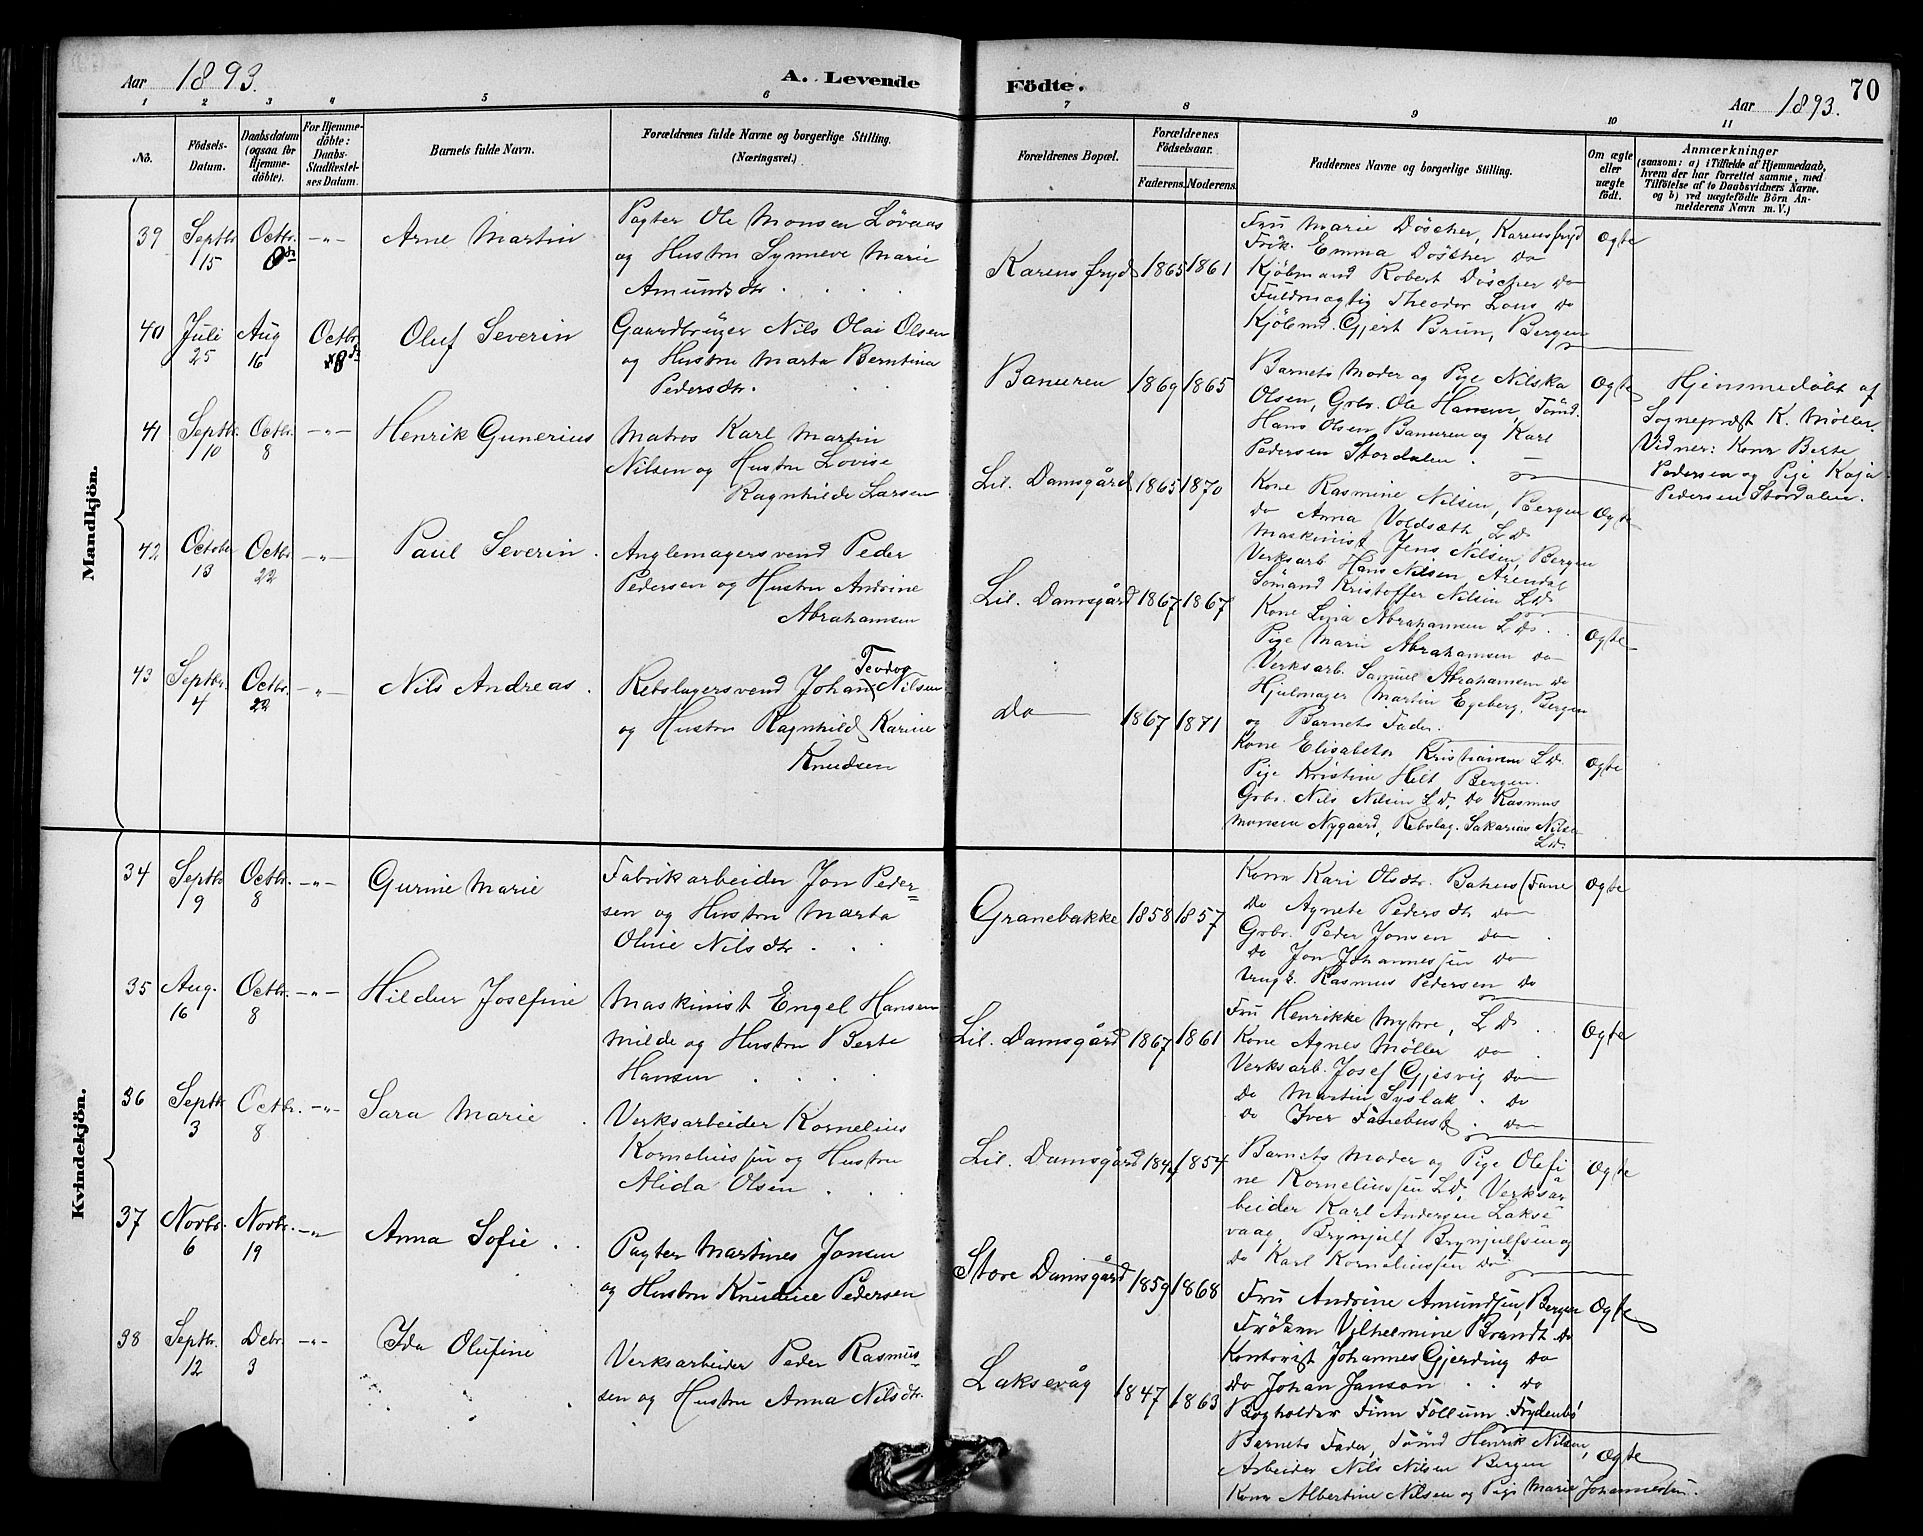 Aar 1893. A. Levende Födte. Aar 1893. 70
1 2 3 4 5 6 7 8 9 10 11
No.
Födsels-
Datum.
Daabsdatum
(ogsaa for
Hjemme-
döbte).
For Hjemme-
döbte:
Daabs-
Stadfæstel-
ses Datum.
Barnets fulde Navn.
Forældrenes fulde Navne og borgerlige Stilling.
(Næringsvei.)
Forældrenes Bopæl.
Forældrenes
Födselsaar.
Faderens. Moderens.
Faddernes Navne og borgerlige Stilling.
Om ægte
eller
uægte
födt.
Anmærkninger
(saasom: a) i Tilfælde af Hjemmedaab,
hvem der har forrettet samme, med
Tilföielse af to Daabsvidners Navne.
og b) ved uægtefödte Börn An-
melderens Navn m. V.)
Mandkjön.
39 Septbr. 15 Octbr. 8de -"- Arne Martin
Pagter Ole Monsen Løvaas
og Hustru Synneve Marie
Amundsdtr.
Karensfryd 1865 1861
Fru Marie Döscher, Karensfryd
Frøk. Emma Döscher do
Kjöbmand Robert Döscher do
Fuldmægtig Theodor Lous do
Kjöbmd. Gjert Brun, Bergen
Ogte
40 Juli 25 Aug 16 Octbr. 8de Oluf Severin
Gaardbruger Nils Olai Olsen
og Hustru Marta Berntina
Pedersdtr.
Banuren 1869 1865
Barnets Moder og Pige Nilska
Olsen, Grbr. Ole Hansen, Tömd.
Hans Olsen Banuren og Karl
Pedersen Stordalen.
Ogte
Hjemmedöbt af
Sognepræst K. Möller.
Vidner: Kone Berte
Pedersen og Pige Kaja
Pedersen Stordalen.
41 Septbr. 10 Octbr. 8 -"- Henrik Gunerius
Matros Karl Martin
Nilsen og Hustru Lovise
Ragnhilde Larsen
Lil. Damsgård 1865 1870
Kone Rasmine Nilsen, Bergen
do Anna Voldsæth, L.D.
Maskinist Jens Nilsen, Bergen
Verksarb. Hans Nilsen Arendal
Sömand Kristoffer Nilsen L.D.
Ogte
42 October 13 Octbr. 22 -"- Paul Severin.
Anglemagersvend Peder
Pedersen og Hustru Andrine
Abrahamsen
Lil. Damsgård 1867 1867
Kone Lina Abrahamsen L.D.
Pige Marie Abrahamsen do
Verksarb. Samuel Abrahamsen do
Hjulmager Martin Egeberg, Bergen
og Barnets Fader.
Ogte
43 Septbr. 4 Octbr. 22 -"- Nils Andreas.
Rebslagersvend Johan Teodor Nilsen
og Hustru Ragnhild Karine
Knudsen
do 1867 1871
Kone Elisabeth Kristiansen L.D.
Pige Kristine Helt Bergen.
Grbr. Nils Nilsen L.D. do Rasmus
Monsen Nygaard, Rebslag. Sakarias Nilsen
L.D.
Ogte
Kvindekjön.
34 Septbr 9 Octbr. 8 -"- Gurine Marie
Fabrikarbeider Jon Peder-
sen og Hustru Marta
Oline Nilsdtr.
Granebakke 1858 1857
Kone Kari Olsdtr. (Fane
do Agnete Pedersdtr do
Grbr. Peder Jonsen do
do Jon Johannessen do
Ungk. Rasmus Pedersen do
Ogte
35 Aug. 16 Octbr. 8 -"- Hildur Josefine
Maskinist Engel Hansen
Milde og Hustru Berte
Hansen
Lil. Damsgård 1867 1861
Fru Henrikke Myhre, L.D.
Kone Agnes Möller do
Verksarb. Josef Gjesvig do
do Martin Syslak. do
do Iver Fanebust. do
Ogte
36 Septbr 3 Octbr. 8 -"- Sara Marie.
Verksarbeider Kornelius
Korneliussen og Hustru
Alida Olsen
Lil. Damsgård 1854
Barnets Moder og Pige Olefi
ne Korneliussen L.D. Verksar
beider Karl Andersen Lakse
vaag, Brynjulf Brynjulfsen og
do Karl Korneliussen do
Ogte
37 Novbr. 6 Novbr. 19 -"- Anna Sofie.
Pagter Martines Jonsen
og Hustru Knudine Pedersen
Store Damsgård 1859 1868
Fru Andrine Amundsen, Bergen
Fröken Vilhelmine Brandt do
Kontorist Johannes Gjerding do
do Johan Janson do
Bogholder Finn Follum. Frydenbö
Ogte
38 Septbr. 12 Debr. 3 -"- Ida Olufine
Verksarbeider Peder Rasmus-
sen og Hustru Anna Nilsdtr.
Laksevåg 1847 1863
Barnets Fader, Tömd Henrik Nilsen,
Arbeider Nils Nilsen Bergen
Kone Albertine Nilsen og Pige Marie Johannessen.
Ogte